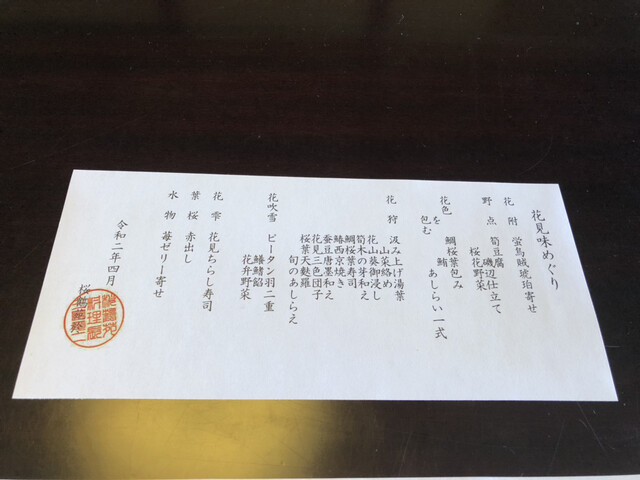 花見味めぐり
花附 蛍烏賊琥珀寄せ
野点 筍豆腐磯辺仕立て
桜花野菜
花色を包む 鯛桜葉包み
鮪 あしらい一式
花狩 汲み上げ湯葉
山菜絡め
花山葵御浸し
筍木の芽和え
鯛桜葉寿司
鰆西京焼き
蚕豆唐墨和え
花見三色団子
桜葉天麩羅
旬のあしらえ
花吹雪 ピータン羽二重
鱶鰭餡
花弁野菜
花雫 花見ちらし寿司
葉桜 赤出し
水物 苺ゼリー寄せ
令和二年四月